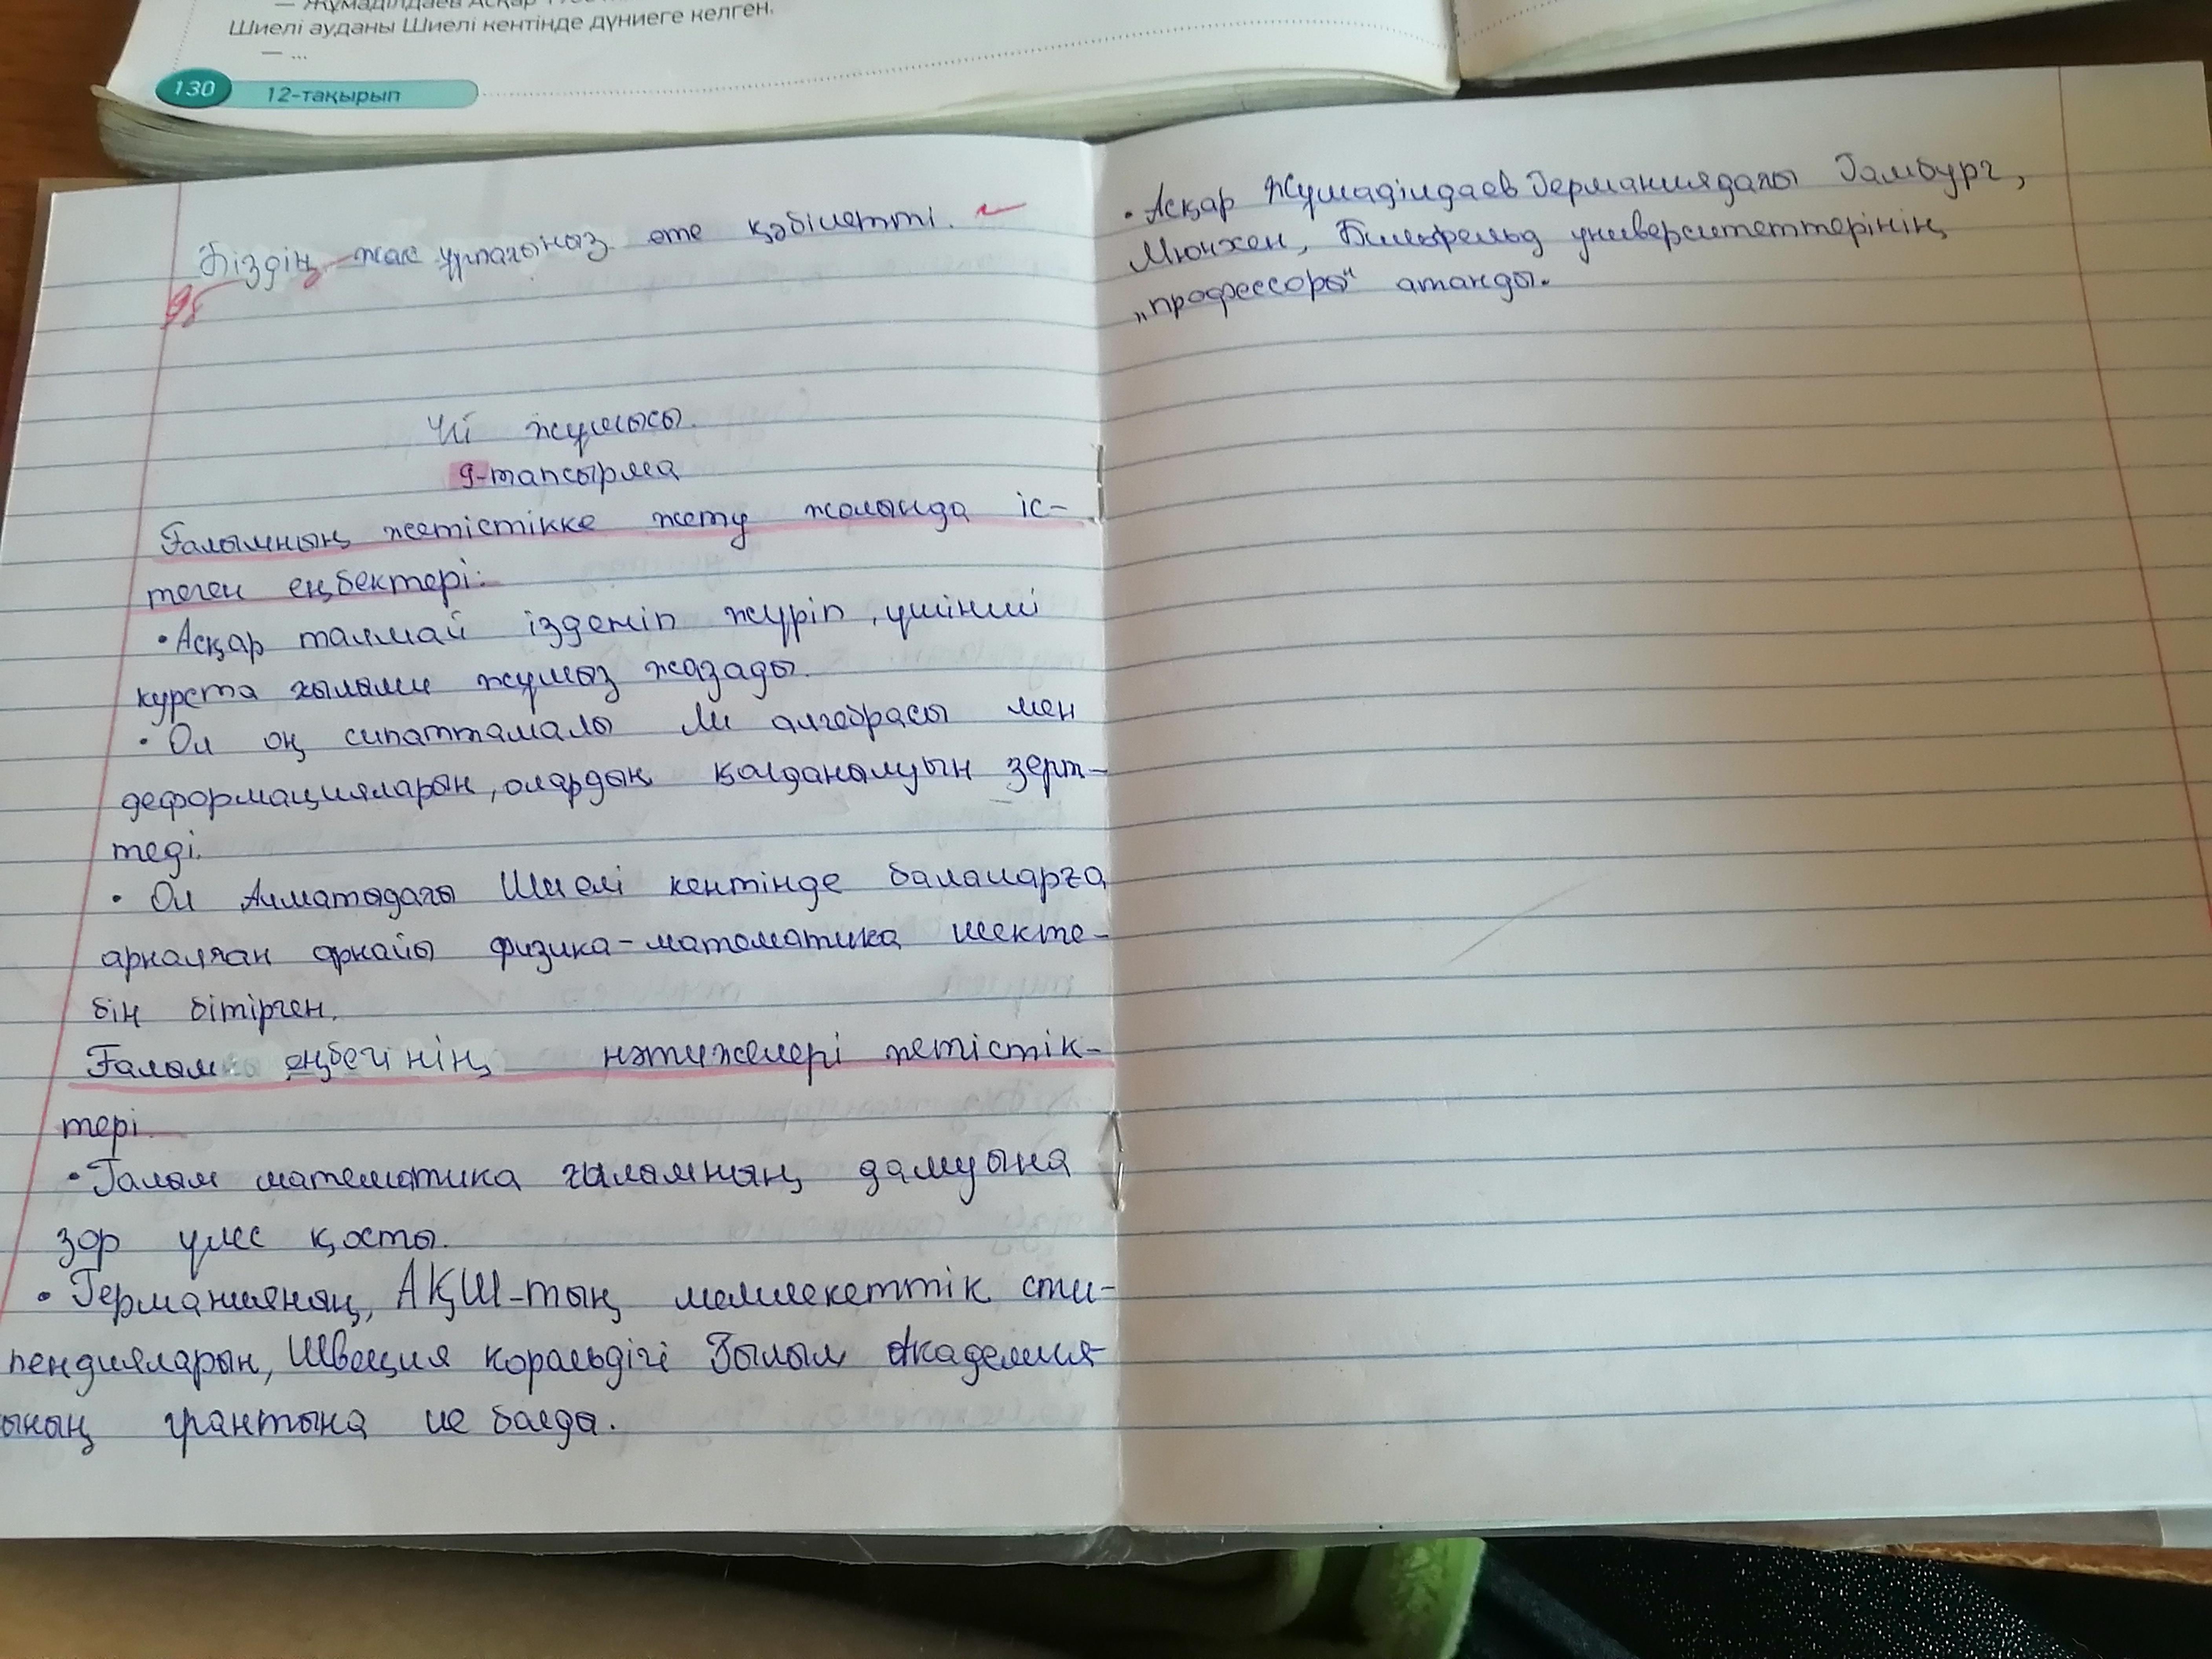 — Жұмаділдаев Асқар
Шиелі ауданы Шиелі кентінде дүниеге келген.
— ...
130 12-тақырып
Біздің жас ұрпағымыз өте қәбілетті.
Үй жұмысы.
9-тапсырма
Ғалымның жетістікке жету жолында іс-
теген еңбектері:
• Асқар талмай ізденіп жүріп, үшінші
курста ғылыми жұмыз жазады.
• Ол оң сипаттамалы Ли алгебрасы мен
деформацияларын, олардың қолданылуын зерт-
теді.
• Ол Алматыдағы Шиелі кентінде балаларға
арналған арнайы физика-математика мекте-
бін бітірген.
Ғалым еңбегінің нәтижелері жетістік-
тері.
• Ғалым математика ғылымның дамуына
зор үлес қосты.
• Германияның, АҚШ-тың мемлекеттік сти-
пендияларын, Швеция корольдігі Ғылым Академия-
ының грантына ие болды.
• Асқар Жұмаділдаев Германиядағы Гамбург,
Мюнхен, Билефельд университеттерінің
„профессоры“ атанды.